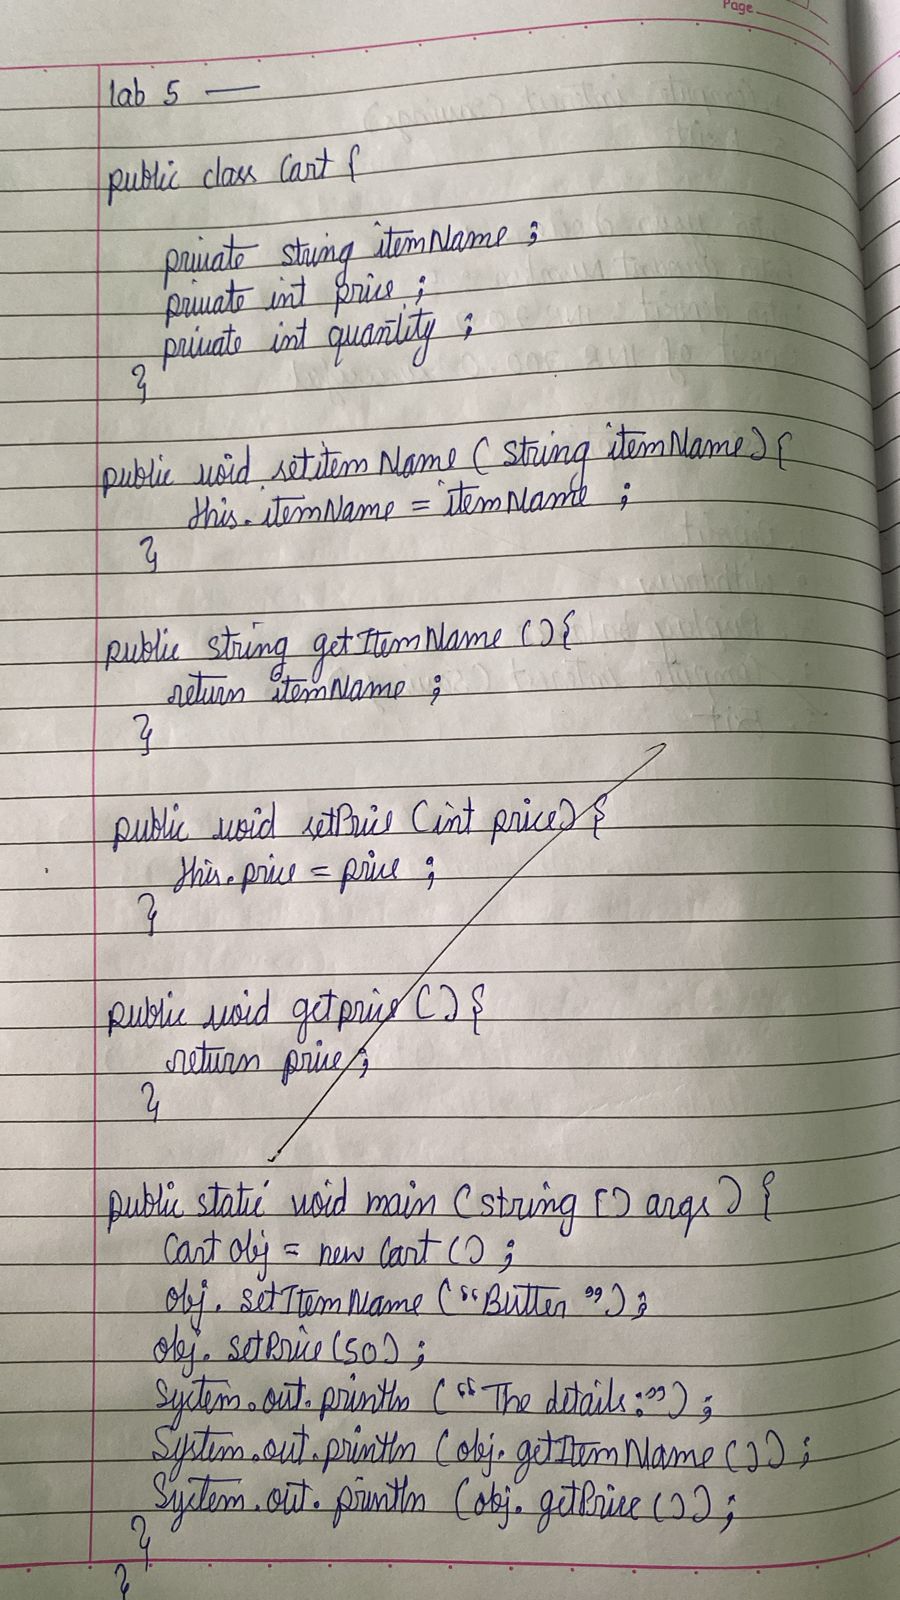 Page
lab 5 —
public class Cart {
private string itemName ;
private int price ;
private int quantity ;
}
public void setitem Name ( string itemName) {
this. itemName = itemName ;
}
public string getItemName () {
return itemName ;
}
public void setPrice (int price) {
this.price = price ;
}
public void getprice () {
return price ;
}
public static void main ( string [] args ) {
Cart obj = new Cart () ;
obj. setItemName (“Butter ”) ;
obj. setPrice (50) ;
System.out.println (“The details:”) ;
System.out.println ( obj. getItemName ()) ;
System.out. println (obj. getPrice ()) ;
}
}